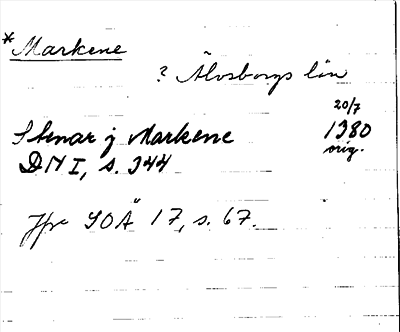 *Markene
? Älvsborgs län
20/7
Stenar j Markene 1380
DN I, s. 344 orig.
Jfr SOÄ 17, s. 67.